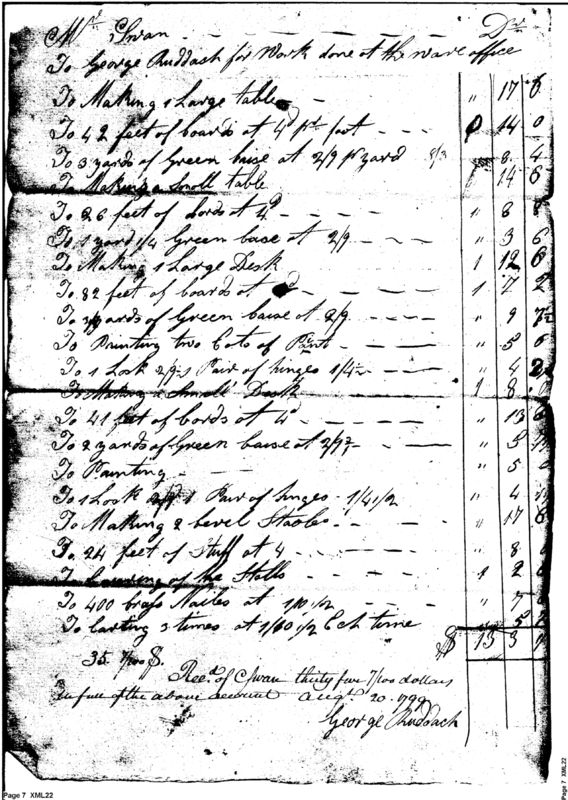 Mr. Swan - - - - - - Dr
To George Ruddach for Work done at the ware office
To Making 1 Large table - " 17 6
To 42 feet of boards at 4d pr foot - - - 14 0
To 3 yards of Green baise at 2/9 pr yard 8/3 " 8 4
To Making a Small table 14 6
To 26 feet of bords at 4d - - - - " 8 8
To 1 yard 1/4 Green base at 2/9 - - - " 3 6
To Making 1 Large Desk 1 12 6
To 82 feet of boards at - - - - 1 7 2
To yards of Green baise at 2/9 - - - " 9 7½
To Painting two Cots of Paint - - - " 5 6
To 1 Lock 2/9 1 Pair of hinges 1/4½ - - - " 4 2
To Making a Small Desk 1 8
To 41 feet of bords at 4d - - - " 13
To 2 yards of Green baise at 2/9 - - " 5
To Painting - - - " 5
To 1 Lock 1 Pair of hinges - 1/4 1/2 " 4
To Making 2 bevel Stools - - - " 17 6
To 24 feet of Stuff at 4 - - - - " 8
To of the Stolls - - - 2
To 400 brass Nailes at 1/10 1/2 - - - " 7
To Carting 3 times at Ech time 5
$ 13 3
35. 7/100 $.
Recd. of C Swan thirty five 7/100 dollars
in full of the above account augt. 20. 1799
George Ruddach
Page 7 XML22
Page 7 XML22